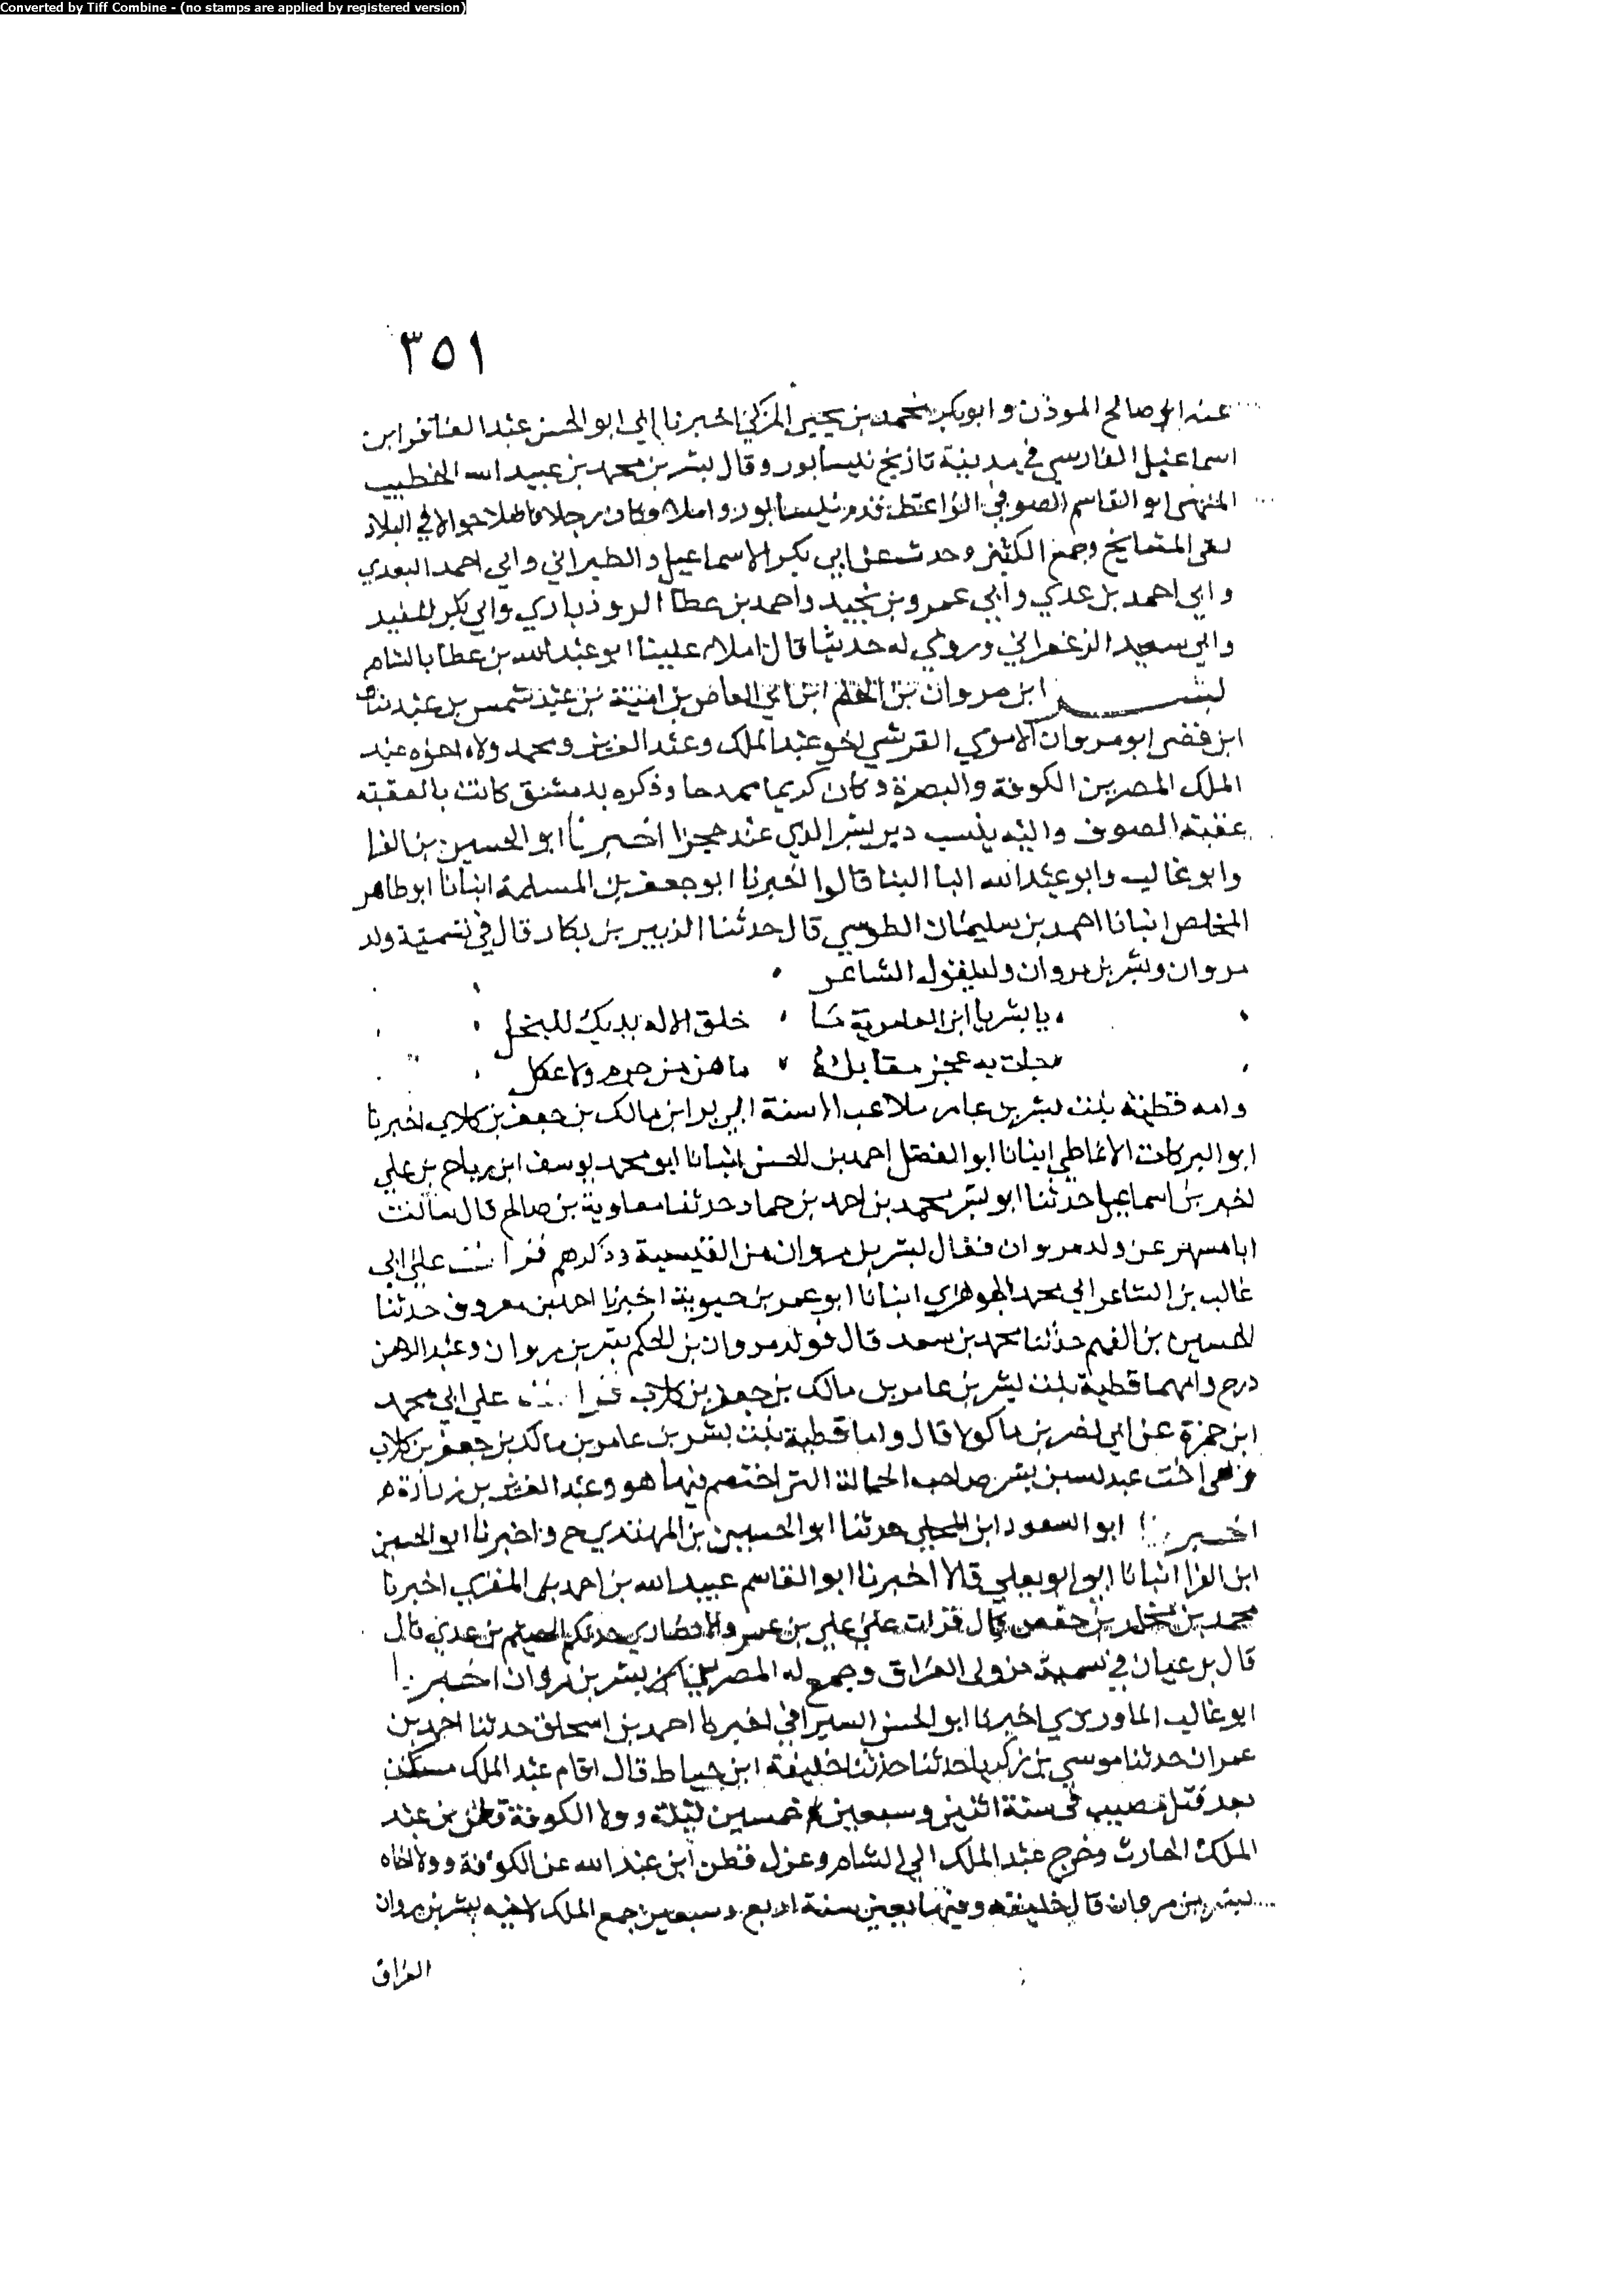 Converted by Tiff Combine - (no stamps are applied by registered version)
٣٥١
عنه ابو صالح الموذن و ابو بكر محمد بن يحيى المزكي اخبرنا ابو الحسن عبد الغافر ابن
اسماعيل الفارسي في تاريخ نيسابور وقال بشر بن محمد بن عبيد الله الخطيب
ابو القاسم الصوفي الواعظ قدم نيسابور و املا وكان رجلا فاضلا جوالا في البلاد
لقى المشايخ وجمع الكثير وحدث عن ابي بكر الاسماعيلي والطبراني وابي احمد
وابي احمد بن عدي وابي عمرو بن نجيد واحمد بن عطا الروذباري وابي بكر المفيد
وابي سعيد الزعفراني وروي له حديثا قال املاه علينا ابو عبد الله بن عطا بالشام
بشر ابن مروان بن الحكم ابن ابي العاص بن امية بن عبد شمس بن عبد مناف
ابن قصى ابو مروان الاموي القرشي اخو عبد الملك وعبد العزيز ومحمد ولاه اخوه عبد
الملك المصرين الكوفة والبصرة وكان كريما ممدحا وذكره بدمشق كانت بالعقبته
عقبة الصوف واليه ينسب دير بشر الذي عند حجرا اخبرنا ابو الحسين بن الفرا
وابو غالب وابو عبد الله ابنا البنا قالوا اخبرنا ابو جعفر بن المسلمة انبانا ابو طاهر
المخلص انبانا احمد بن سليمان الطوسي قال حدثنا الزبير بن بكار قال في تسمية ولد
مروان وبشر بن مروان وله يقول الشاعر
يا بشر يا ابن العامرية ما خلق الاله يديك للبخل
جات به عجز مقابلة ما هن من جرم ولا عكل
وامه قطية بنت بشر بن عامر ملاعب الاسنة ابي برا بن مالك بن جعفر بن كلاب اخبرنا
ابو البركات الانماطي انبانا ابو الفضل احمد بن الحسن انبانا ابو محمد يوسف ابن رياح بن علي
احمد بن اسماعيل حدثنا ابو بشر محمد بن احمد بن حماد حدثنا معاوية بن صالح قال سالت
ابا مسهر عن ولد مروان فقال بشر بن مروان من القيسية وذكرهم قرات على ابي
غالب بن ابي محمد الجوهري انبانا ابو عمر بن حيوية اخبرنا احمد بن معروف حدثنا
الحسين بن الفهم حدثنا محمد بن سعد قال فولد مروان بن الحكم بشر بن مروان وعبد الرحمن
درج وامهما قطية بنت بشر بن عامر بن مالك بن جعفر بن كلاب قرات على ابي محمد
ابن حمزة عن ابي نصر بن ماكولا قال واما قطية بنت بشر بن عامر بن مالك بن جعفر بن كلاب
اخت بن بشر صاحب الحمالة التي اختصم فيها هو وعبد العزيز بن زرارة
اخبرنا ابو السعود ابن المجلي حدثنا ابو الحسين بن المهتدي ح واخبرنا ابو الحسين
ابن الفرا انبانا ابي ابو يعلي قالا اخبرنا ابو القاسم عبيد الله بن احمد بن علي اخبرنا
محمد بن مخلد بن حفص قال قرات على علي بن عمرو الانصاري حدثكم الهيثم بن عدي قال
قال بن عياش في تسمية من ولى العراق وجمع له المصرين بشر بن مروان اخبرنا
ابو غالب الماوردي اخبرنا ابو الحسن السيرافي اخبرنا احمد بن اسحاق حدثنا احمد بن
عمران حدثنا موسي بن زكريا حدثنا حدثنا خليفة ابن خياط قال اقام عبد الملك
بعد قتل مصعب في سنة اثنين وسبعين خمسين ليلة وولا الكوفة قطن بن عبد
الملك الحارث وخرج عبد الملك الي الشام وعزل قطن ابن عبد الله عن الكوفة وولا اخاه
بشر بن مروان قال خليفة وفيها يعني سنة اربع وسبعين جمع الملك لاخيه بشر بن مروان
العراق